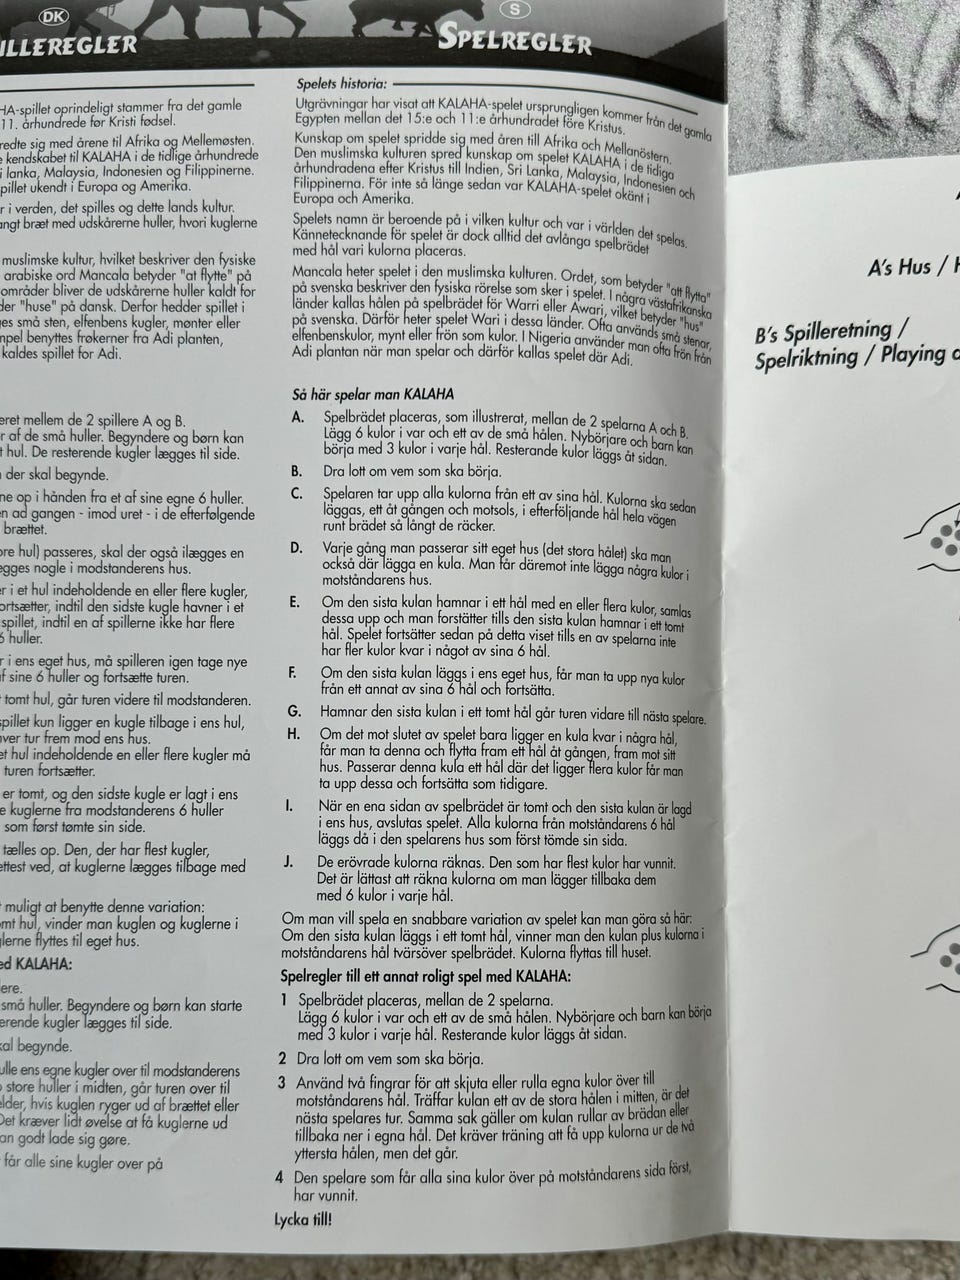 DK
ILLEREGLER
HA-spillet oprindeligt stammer fra det gamle
11. århundrede før Kristi fødsel.
redte sig med årene til Afrika og Mellemøsten.
e kendskabet til KALAHA i de tidlige århundrede
i lanka, Malaysia, Indonesien og Filippinerne.
pillet ukendt i Europa og Amerika.
r i verden, det spilles og dette lands kultur.
angt bræt med udskårerne huller, hvori kuglerne
muslimske kultur, hvilket beskriver den fysiske
arabiske ord Mancala betyder "at flytte" på
områder bliver de udskårerne huller kaldt for
der "huse" på dansk. Derfor hedder spillet i
ges små sten, elfenbens kugler, mønter eller
mpel benyttes frøkerner fra Adi planten,
kaldes spillet for Adi.
eret mellem de 2 spillere A og B.
r af de små huller. Begyndere og børn kan
t hul. De resterende kugler lægges til side.
der skal begynde.
ne op i hånden fra et af sine egne 6 huller.
en ad gangen - imod uret - i de efterfølgende
brættet.
ore hul) passeres, skal der også ilægges en
ægges nogle i modstanderens hus.
er i et hul indeholdende en eller flere kugler,
ortsætter, indtil den sidste kugle havner i et
spillet, indtil en af spillerne ikke har flere
6 huller.
r i ens eget hus, må spilleren igen tage nye
f sine 6 huller og fortsætte turen.
tomt hul, går turen videre til modstanderen.
spillet kun ligger en kugle tilbage i ens hul,
ver tur frem mod ens hus.
et hul indeholdende en eller flere kugler må
turen fortsætter.
er tomt, og den sidste kugle er lagt i ens
e kuglerne fra modstanderens 6 huller
som først tømte sin side.
tælles op. Den, der har flest kugler,
ettest ved, at kuglerne lægges tilbage med
muligt at benytte denne variation:
omt hul, vinder man kuglen og kuglerne i
glerne flyttes til eget hus.
ed KALAHA:
ere.
små huller. Begyndere og børn kan starte
erende kugler lægges til side.
kal begynde.
ulle ens egne kugler over til modstanderens
o store huller i midten, går turen over til
elder, hvis kuglen ryger ud af brættet eller
Det kræver lidt øvelse at få kuglerne ud
an godt lade sig gøre.
får alle sine kugler over på
S
SPELREGLER
Spelets historia:
Utgrävningar har visat att KALAHA-spelet ursprungligen kommer från det gamla
Egypten mellan det 15:e och 11:e århundradet före Kristus.
Kunskap om spelet spridde sig med åren till Afrika och Mellanöstern.
Den muslimska kulturen spred kunskap om spelet KALAHA i de tidiga
århundradena efter Kristus till Indien, Sri Lanka, Malaysia, Indonesien och
Filippinerna. För inte så länge sedan var KALAHA-spelet okänt i
Europa och Amerika.
Spelets namn är beroende på i vilken kultur och var i världen det spelas.
Kännetecknande för spelet är dock alltid det avlånga spelbrädet
med hål vari kulorna placeras.
Mancala heter spelet i den muslimska kulturen. Ordet, som betyder "att flytta"
på svenska beskriver den fysiska rörelse som sker i spelet. I några västafrikanska
länder kallas hålen på spelbrädet för Warri eller Awari, vilket betyder "hus"
på svenska. Därför heter spelet Wari i dessa länder. Ofta används små stenar,
elfenbenskulor, mynt eller frön som kulor. I Nigeria använder man ofta frön från
Adi plantan när man spelar och därför kallas spelet där Adi.
Så här spelar man KALAHA
A. Spelbrädet placeras, som illustrerat, mellan de 2 spelarna A och B.
Lägg 6 kulor i var och ett av de små hålen. Nybörjare och barn kan
börja med 3 kulor i varje hål. Resterande kulor läggs åt sidan.
B. Dra lott om vem som ska börja.
C. Spelaren tar upp alla kulorna från ett av sina hål. Kulorna ska sedan
läggas, ett åt gången och motsols, i efterföljande hål hela vägen
runt brädet så långt de räcker.
D. Varje gång man passerar sitt eget hus (det stora hålet) ska man
också där lägga en kula. Man får däremot inte lägga några kulor i
motståndarens hus.
E. Om den sista kulan hamnar i ett hål med en eller flera kulor, samlas
dessa upp och man forstätter tills den sista kulan hamnar i ett tomt
hål. Spelet fortsätter sedan på detta viset tills en av spelarna inte
har fler kulor kvar i något av sina 6 hål.
F. Om den sista kulan läggs i ens eget hus, får man ta upp nya kulor
från ett annat av sina 6 hål och fortsätta.
G. Hamnar den sista kulan i ett tomt hål går turen vidare till nästa spelare.
H. Om det mot slutet av spelet bara ligger en kula kvar i några hål,
får man ta denna och flytta fram ett hål åt gången, fram mot sitt
hus. Passerar denna kula ett hål där det ligger flera kulor får man
ta upp dessa och fortsätta som tidigare.
I. När en ena sidan av spelbrädet är tomt och den sista kulan är lagd
i ens hus, avslutas spelet. Alla kulorna från motståndarens 6 hål
läggs då i den spelarens hus som först tömde sin sida.
J. De erövrade kulorna räknas. Den som har flest kulor har vunnit.
Det är lättast att räkna kulorna om man lägger tillbaka dem
med 6 kulor i varje hål.
Om man vill spela en snabbare variation av spelet kan man göra så här:
Om den sista kulan läggs i ett tomt hål, vinner man den kulan plus kulorna i
motståndarens hål tvärsöver spelbrädet. Kulorna flyttas till huset.
Spelregler till ett annat roligt spel med KALAHA:
1 Spelbrädet placeras, mellan de 2 spelarna.
Lägg 6 kulor i var och ett av de små hålen. Nybörjare och barn kan börja
med 3 kulor i varje hål. Resterande kulor läggs åt sidan.
2 Dra lott om vem som ska börja.
3 Använd två fingrar för att skjuta eller rulla egna kulor över till
motståndarens hål. Träffar kulan ett av de stora hålen i mitten, är det
nästa spelares tur. Samma sak gäller om kulan rullar av brädan eller
tillbaka ner i egna hål. Det kräver träning att få upp kulorna ur de två
yttersta hålen, men det går.
4 Den spelare som får alla sina kulor över på motståndarens sida först,
har vunnit.
Lycka till!
A's Hus / H
B's Spilleretning /
Spelriktning / Playing d